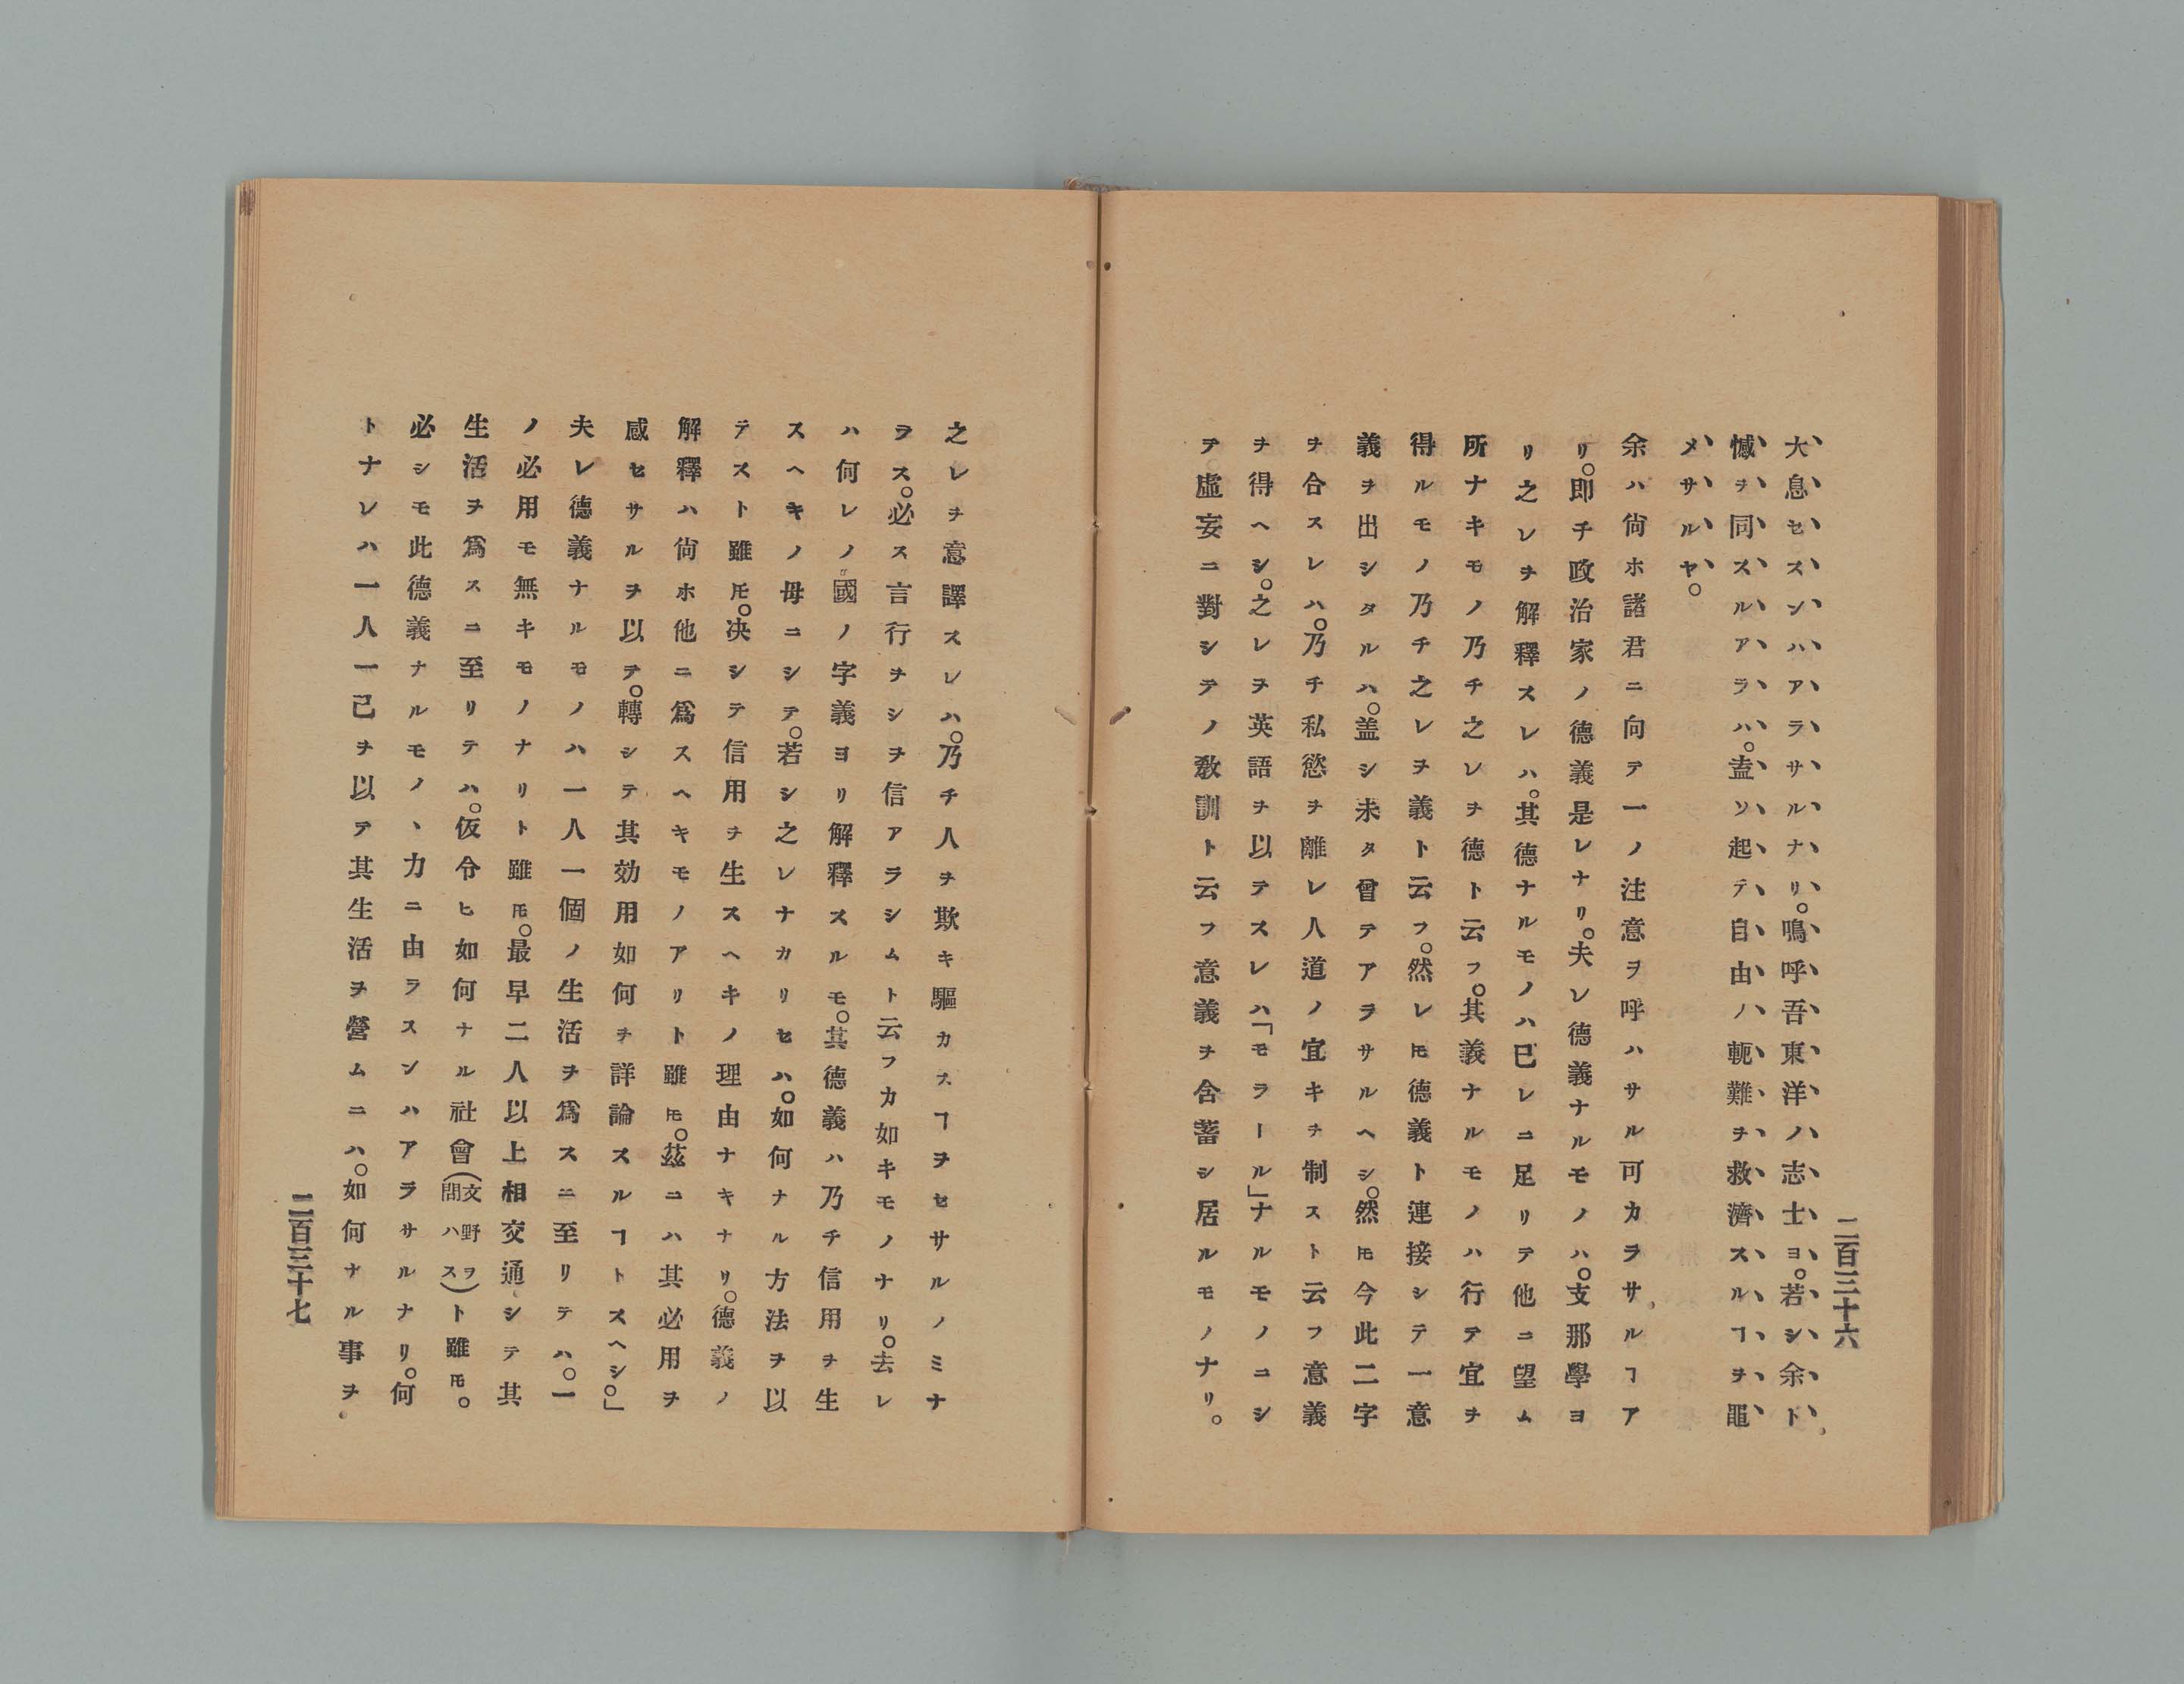 二百三十六
大息セスンハアラサルナリ。嗚呼吾東洋ノ志士ヨ。若シ余ト
憾ヲ同スルアラハ。盍ソ起テ自由ノ軛難ヲ救濟スルヿヲ黽
メサルヤ。
余ハ尙ホ諸君ニ向テ一ノ注意ヲ呼ハサル可カラサルヿア
リ。即チ政治家ノ德義是レナリ。夫レ德義ナルモノハ。支那學ヨ
リ之レヲ解釋スレハ。其德ナルモノハ已レニ足リテ他ニ望ム
所ナキモノ乃チ之レヲ德ト云フ。其義ナルモノハ行テ宜ヲ
得ルモノ乃チ之レヲ義ト云フ。然レ𪜈德義ト連接シテ一意
義ヲ出シタルハ。盖シ未タ曾テアラサルヘシ。然𪜈今此二字
ヲ合スレハ。乃チ私慾ヲ離レ人道ノ宜キヲ制スト云フ意義
ヲ得ヘシ。之レヲ英語ヲ以テスレハ「モラール」ナルモノニシ
テ。虛妄ニ對シテノ敎訓ト云フ意義ヲ含蓄シ居ルモノナリ。
之レヲ意譯スレハ。乃チ人ヲ欺キ驅カスヿヲセサルノミナ
ラス。必ス言行ヲシヲ信アラシムト云フカ如キモノナリ。去レ
ハ何レノ國ノ字義ヨリ解釋スルモ。其德義ハ乃チ信用ヲ生
スヘキノ母ニシテ。若シ之レナカリセハ。如何ナル方法ヲ以
テスト雖𪜈。决シテ信用ヲ生スヘキノ理由ナキナリ。德義ノ
解釋ハ尙ホ他ニ爲スヘキモノアリト雖𪜈。茲ニハ其必用ヲ
感セサルヲ以テ。轉シテ其効用如何ヲ詳論スルヿトスヘシ。」
夫レ德義ナルモノハ一人一個ノ生活ヲ爲スニ至リテハ。一
ノ必用モ無キモノナリト雖𪜈。最早二人以上相交通シテ其
生活ヲ爲スニ至リテハ。仮令ヒ如何ナル社會(文野ヲ問ハス)ト雖𪜈。
必シモ此德義ナルモノヽ力ニ由ラスンハアラサルナリ。何
トナレハ一人一己ヲ以テ其生活ヲ營ムニハ。如何ナル事ヲ
二百三十七